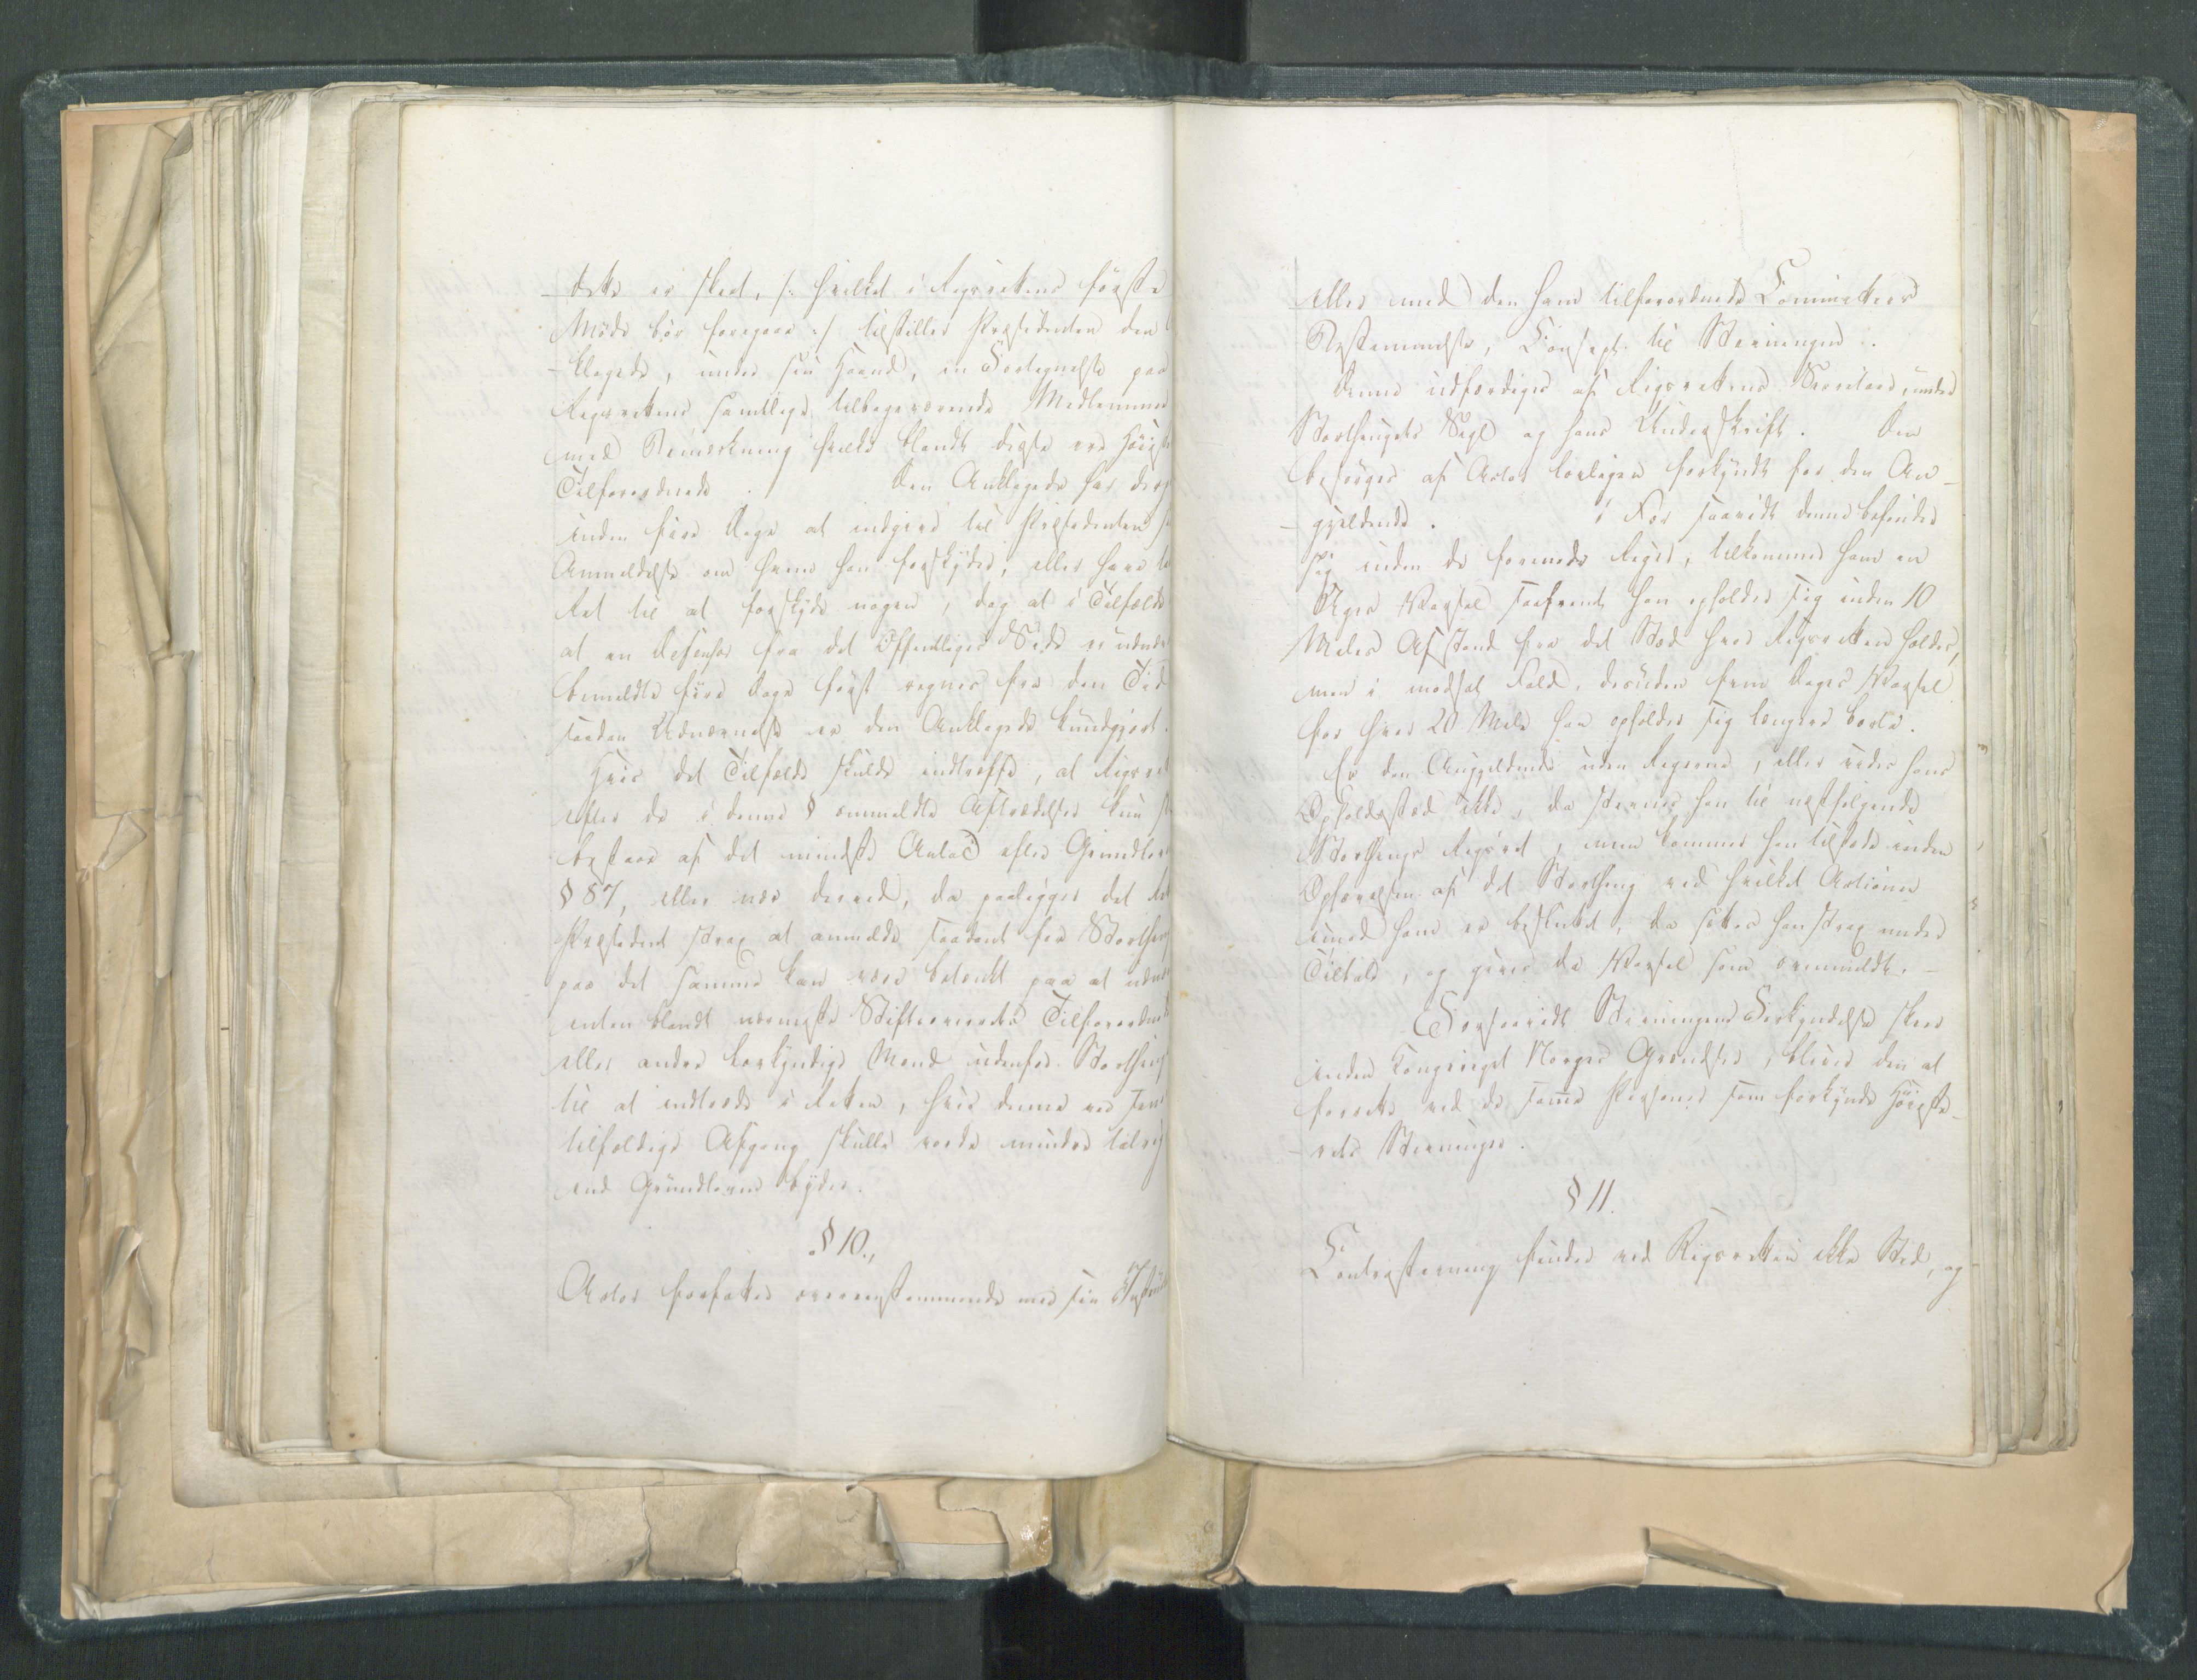 dette er skeet, /: hvilket i Rigsrettens første
Møde bør foregaae :/ tilstiller Præsidenten den
klagede, under sin Haand, en Fortegnelse paa
Rigsrettens samtlige tilbageværende Medlemmer
med Bemærkning hvilke blandt disse ere Høieste
Tilforordnede. Den Anklagede har derp
inden fire Dage at indgive til Præsidenten
Anmeldelse om hvem han forskyder, eller have
Ret til at forskyde nogen, dog at i Tilfælde
at en Defensor fra det Offentliges Side er udnæv
bemeldte fire Dage først regnes fra den Tid
saadan Udnævnelse er den Anklagede kundgjort.
Hvis det Tilfælde skulde indtræffe, at Rigsret
efter de i denne § ommeldte Aftrædelser kun
bestaar af det mindste Antal efter Grundlov
§ 87, eller nær derved, da paaligger det
Præsident strax at anmelde saadant for Storthing
paa det samme kan være betænkt paa at udnæv
enten blandt nærmeste Stiftsoverrets Tilforordned
eller andre lovkyndige Mænd udenfor Storthing
til at indtræde i Retten, hvis denne ved
tilfældige Afgang skulle vorde mindre talrig
end Grundloven byder.
§ 10.
Actor forfatter overensstemmende med sin Instrux
eller med den ham tilforordnede Committees
Bestemmelse, Concept til Stævningen.
Denne udfærdiges af Rigsrettens Secretaire under
Storthingets Segl og hans Underskrift. Den
besørges af Actor lovligen forkyndt for den An-
gjeldende. For saavidt denne befinder
sig inden de forenede Riger, tilkommer ham en
Uges Varsel saafremt han opholder sig inden 10
Miles Afstand fra det Sted hvor Rigsretten holdes,
men i modsat Fald, desuden fem Dages Varsel
for hver 20 Mile han opholder sig længere borte.
Er den Angjeldende uden Rigerne, eller vides hans
Opholdssted ikke, da stævnes han til næstfølgende
Storthings Rigsret, men kommer han tilstede inden
Ophævelsen af det Storthing ved hvilket Actionen
imod ham er besluttet, da sættes han strax under
Tiltale, og gives da Varsel som ovenmeldt. -
Forsaavidt Stævningens Forkyndelse skeer
inden Kongeriget Norges Grændser, bliver den at
forrette ved de samme Personer som forkynde Høieste-
rets Stævninger.
§ 11.
Contrastævning finder ved Rigsretten ikke Sted, og